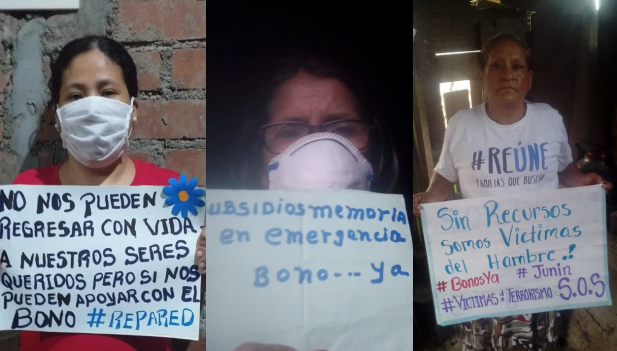 NO NOS PUEDEN
REGRESAR CON VIDA
A NUESTROS SERES
QUERIDOS PERO SI NOS
PUEDEN APOYAR CON EL
BONO #REPARED
UBSIDIOS MEMORIA
en emergencia
BONO... YA
#REÚNE
FAMILIAS QUE BUSCAN
Sin Recursos
Somos Victimas
del Hambre..!
#BONOSYa #Junin
#VICTIMAS d TERRORISMO S.O.S